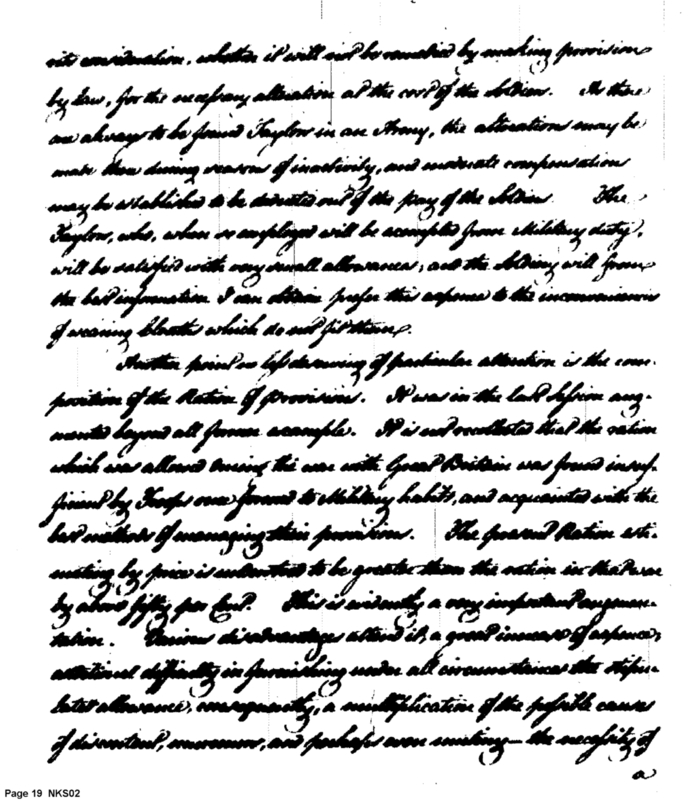 rits consideration, whether it will not be remedied by making provision
by Law, for the necessary alteration at the cost of the Soldiers. As there
are always to be found Taylors in an Army, the alterations may be
made there during seasons of inactivity, and moderate compensation
may be established to be deducted out of the pay of the Soldiers. The
Taylors, who, when so employed will be exempted from Military duty,
will be satisfied with very small allowances; and the Soldiery will from
the best information I can obtain prefer this expence to the inconveniencies
of wearing Cloaths which do not fit them.
Another point no less deserving of particular attention is the com-
position of the Ration of provisions. It was in the last Session aug-
mented beyond all former example. It is not recollected that the ration
which was allowed during the war with Great Britain was found insuf-
ficient by Troops once formed to Military habits, and acquainted with the
best methods of managing their provisions. The present Ration esti-
mating by price is understood to be greater than the ration in that war
by about fifty per Cent. This is evidently a very important augmen-
tation. Various disadvantages attend it, a great increase of expence,
additional difficulty in furnishing under all circumstances the stipu-
lated allowance, consequently, a multiplication of the possible causes
of discontent, murmurs, and perhaps even mutiny— the necessity of
a
Page 19 NKS02